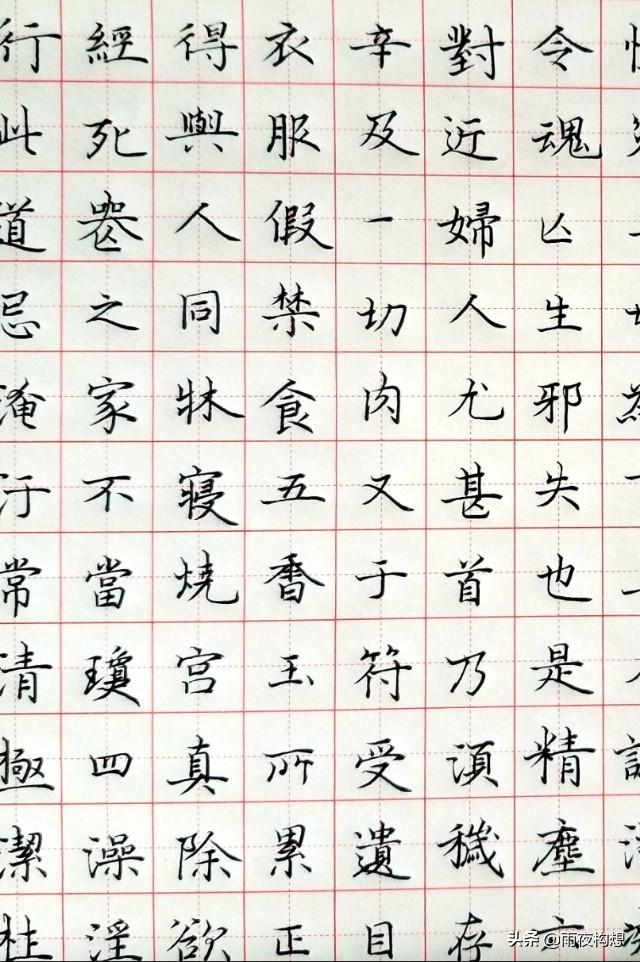 行此道忌淹汙
經死喪之家不
得與人同牀寢
衣服假禁食五
辛及一切肉又
對近婦人尤甚
令魂亾生邪失
常當燒香于首也
清瓊宮玉符乃是
極四真所受須精
潔澡除累遺穢塵
杜淫欲正目存
头条 @雨夜构想